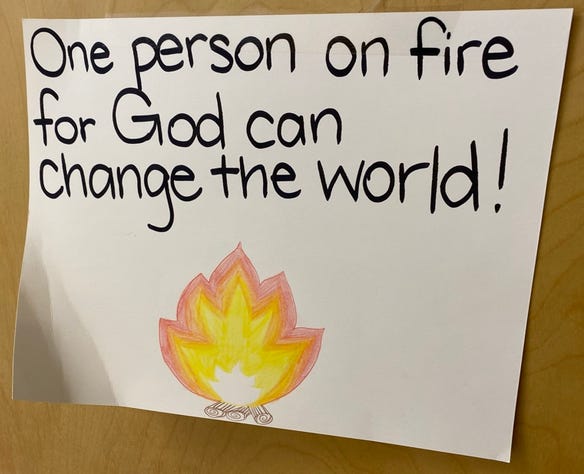 One person on fire
for God can
change the world!